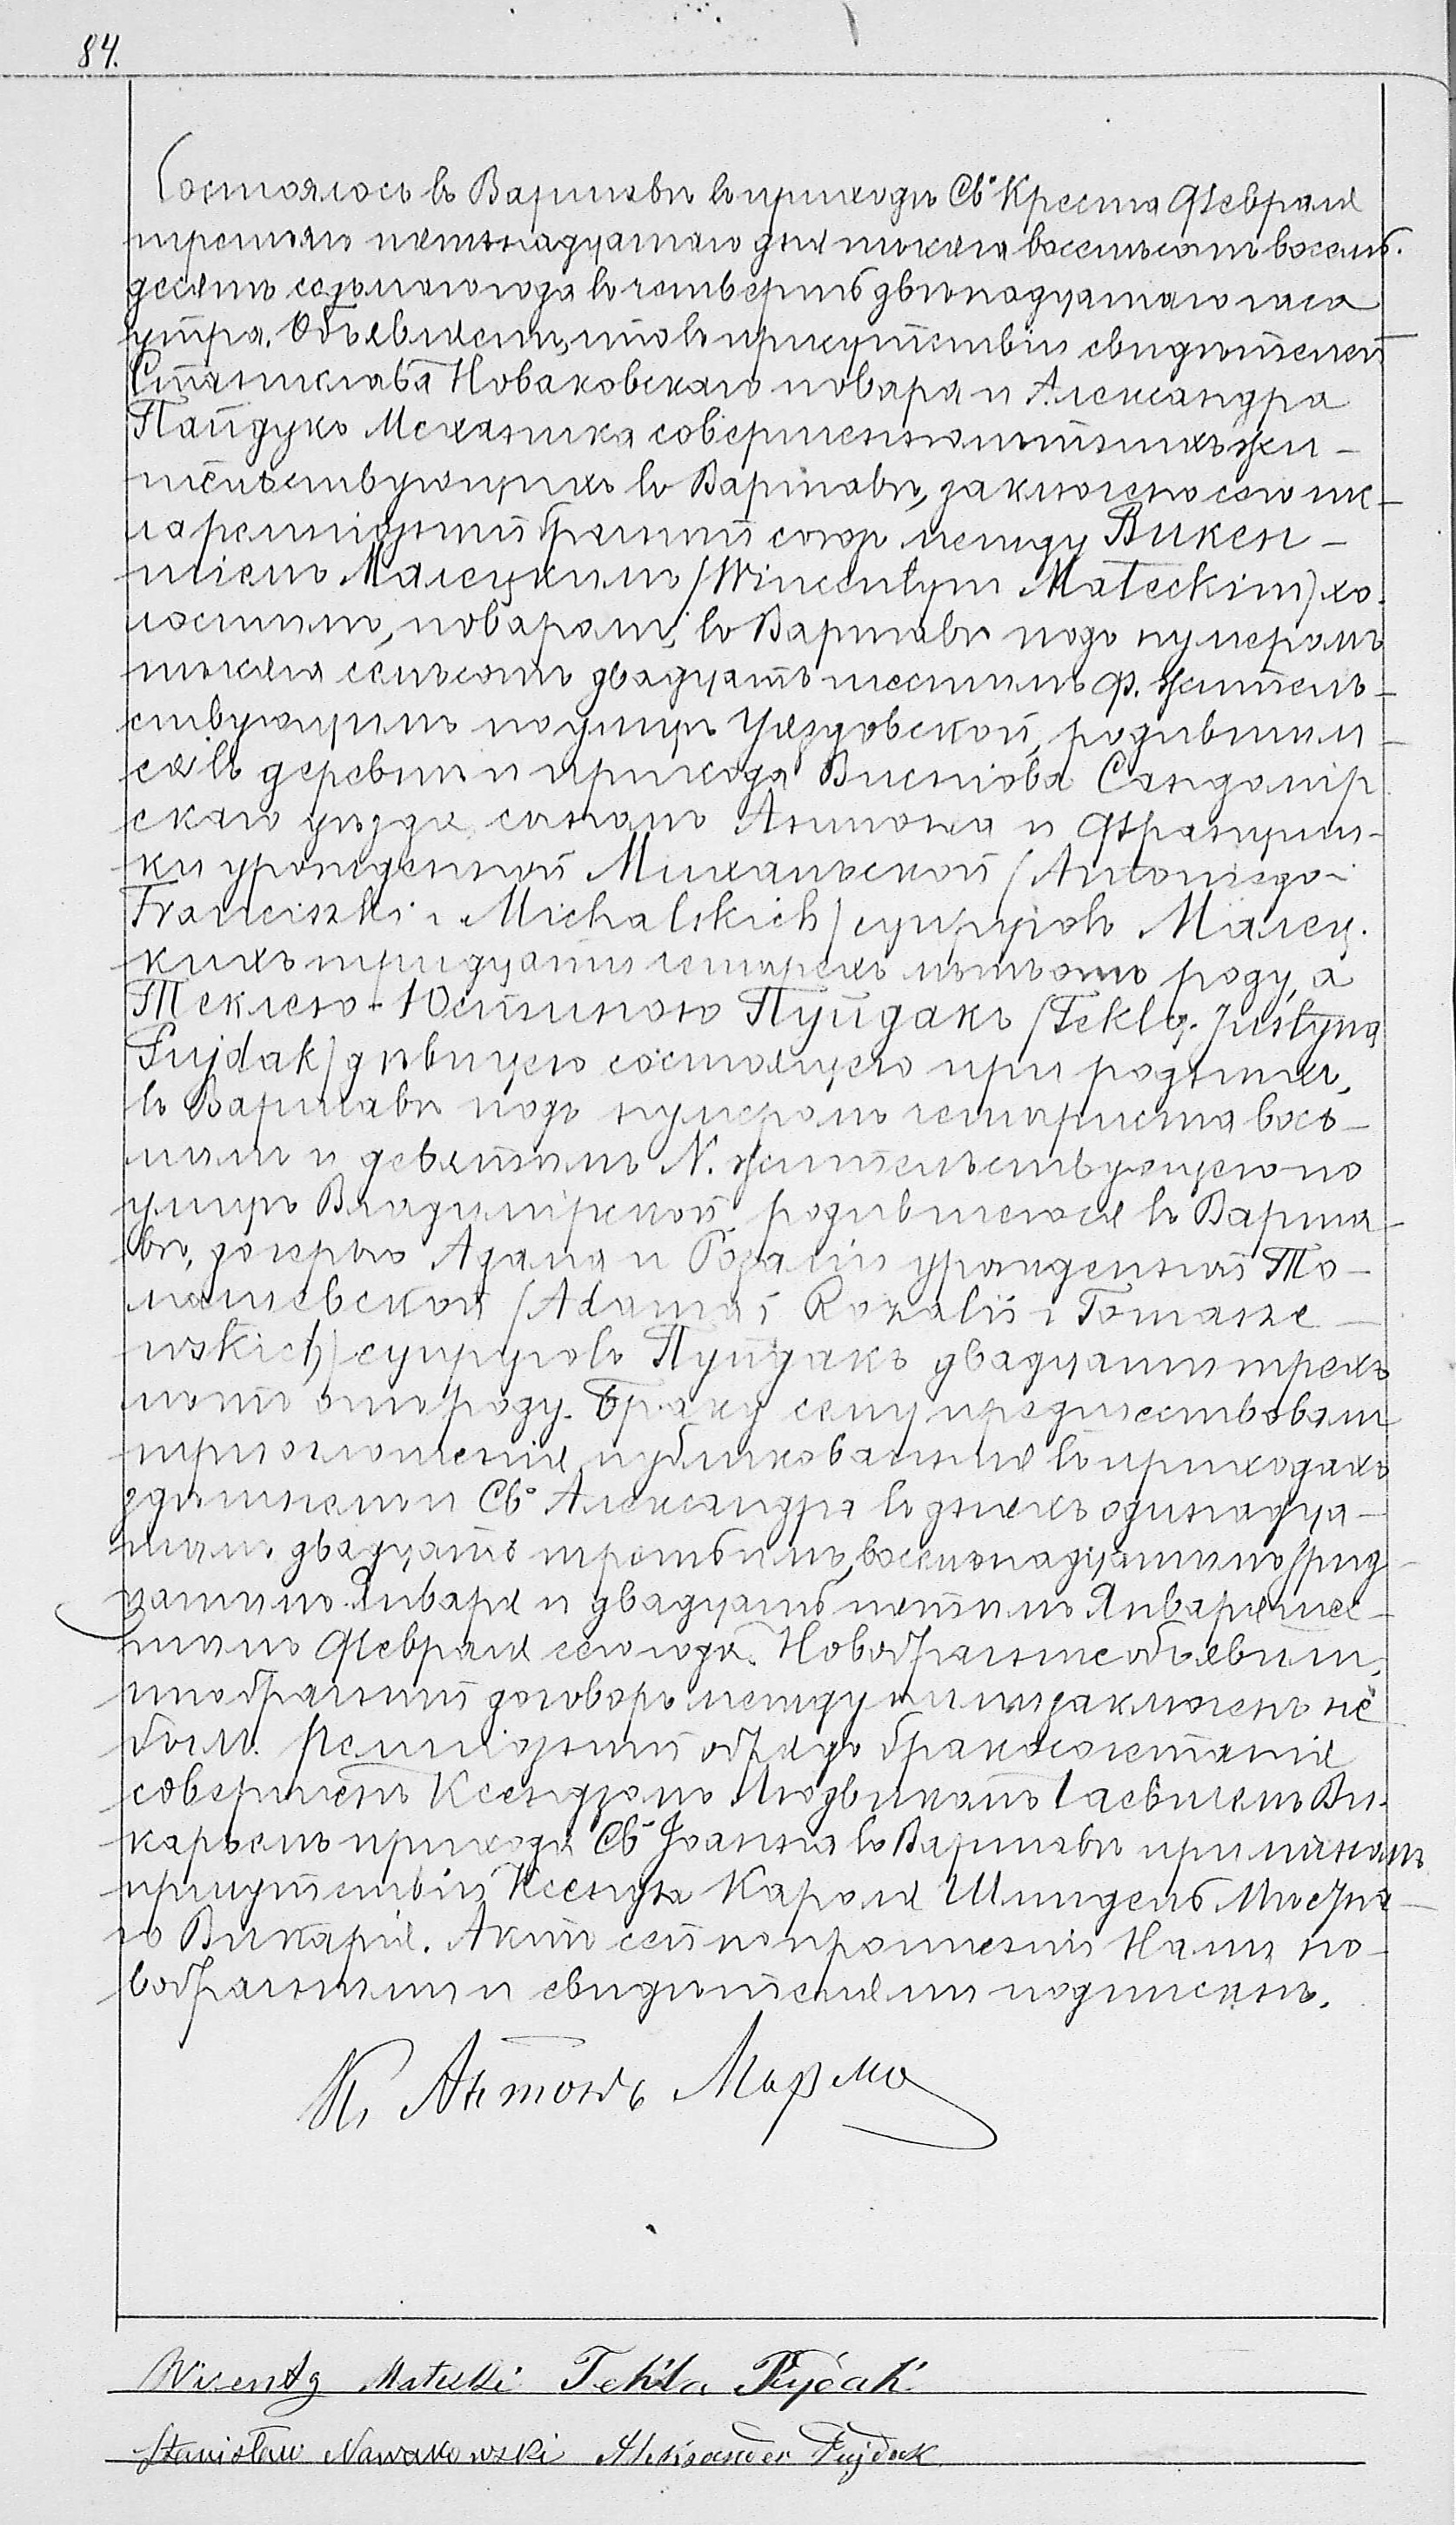 84.
Состоялось въ Варшавѣ въ приходѣ Св. Креста Февраля
третьяго пятнадцатаго дня тысяча восемьсотъ восемь-
десятъ седьмого года въ четверть двѣнадцатаго часа
утра. Объявляемъ, что въ присутствіи свидѣтелей
Станислава Новаковскаго повара и Александра
Пайдукъ Механика совершеннолѣтнихъ жи-
тельствующихъ въ Варшавѣ, заключено сего чис-
ла религіозный брачный союзъ между Викен-
тіемъ Малецкимъ /Wincentym Małeckim/ хо-
лостымъ, поваромъ, въ Варшавѣ подъ нумеромъ
тысяча семьсотъ двадцать шестымъ Ф. житель-
ствующимъ по улицѣ Уяздовской, родившим-
ся въ деревни и прихода Висніова Сандомір
скаго уѣзда сыномъ Антона и Францишки-
ки урожденной Михальской /Antoniego i
Franciszki z Michalskich/ супруговъ Малец-
кихъ тридцати четырехъ лѣтъ отъ роду, а
Теклею-Юстиною Пуйдакъ /Teklą-Justyną
Pujdak/ дѣвицею состоящею при родныхъ,
въ Варшавѣ подъ нумеромъ четыриста вось-
мым и девятымъ N. жительствующею по
улицѣ Владимірской, родившеюся въ Варша-
вѣ, дочерью Адама и Розаліи урожденной То-
машевской /Adama i Rozalii z Tomasze-
wskich/ супруговъ Пуйдакъ двадцати трехъ
лѣтъ отъ роду. Браку сему предшествовали
три оглашенія публикованныя въ приходахъ
здѣшнемъ и Св. Александра въ дняхъ одинадца-
томъ двадцать третьимъ, восемнадцатымъ трид-
цатымъ Января и двадцать пятымъ Января шес-
тымъ Февраля сего года. Новобрачные объявили,
что брачный договоръ между ними заключенъ не
былъ. Религіозный обрядъ бракосочетанія
совершенъ Ксендзомъ Людвикомъ Ви-
каріемъ прихода Св. Іоанна въ Варшавѣ при личномъ
присутствіи Ксендза Кароля Шмидель Мѣстна-
го Викарія. Актъ сей по прочтеніи Нами но-
вобрачными и свидѣтелями подписанъ.
К. Антонъ
Wicenty Małecki Tekla Pujdak
Stanisław Nowakowski Aleksander Pujdak